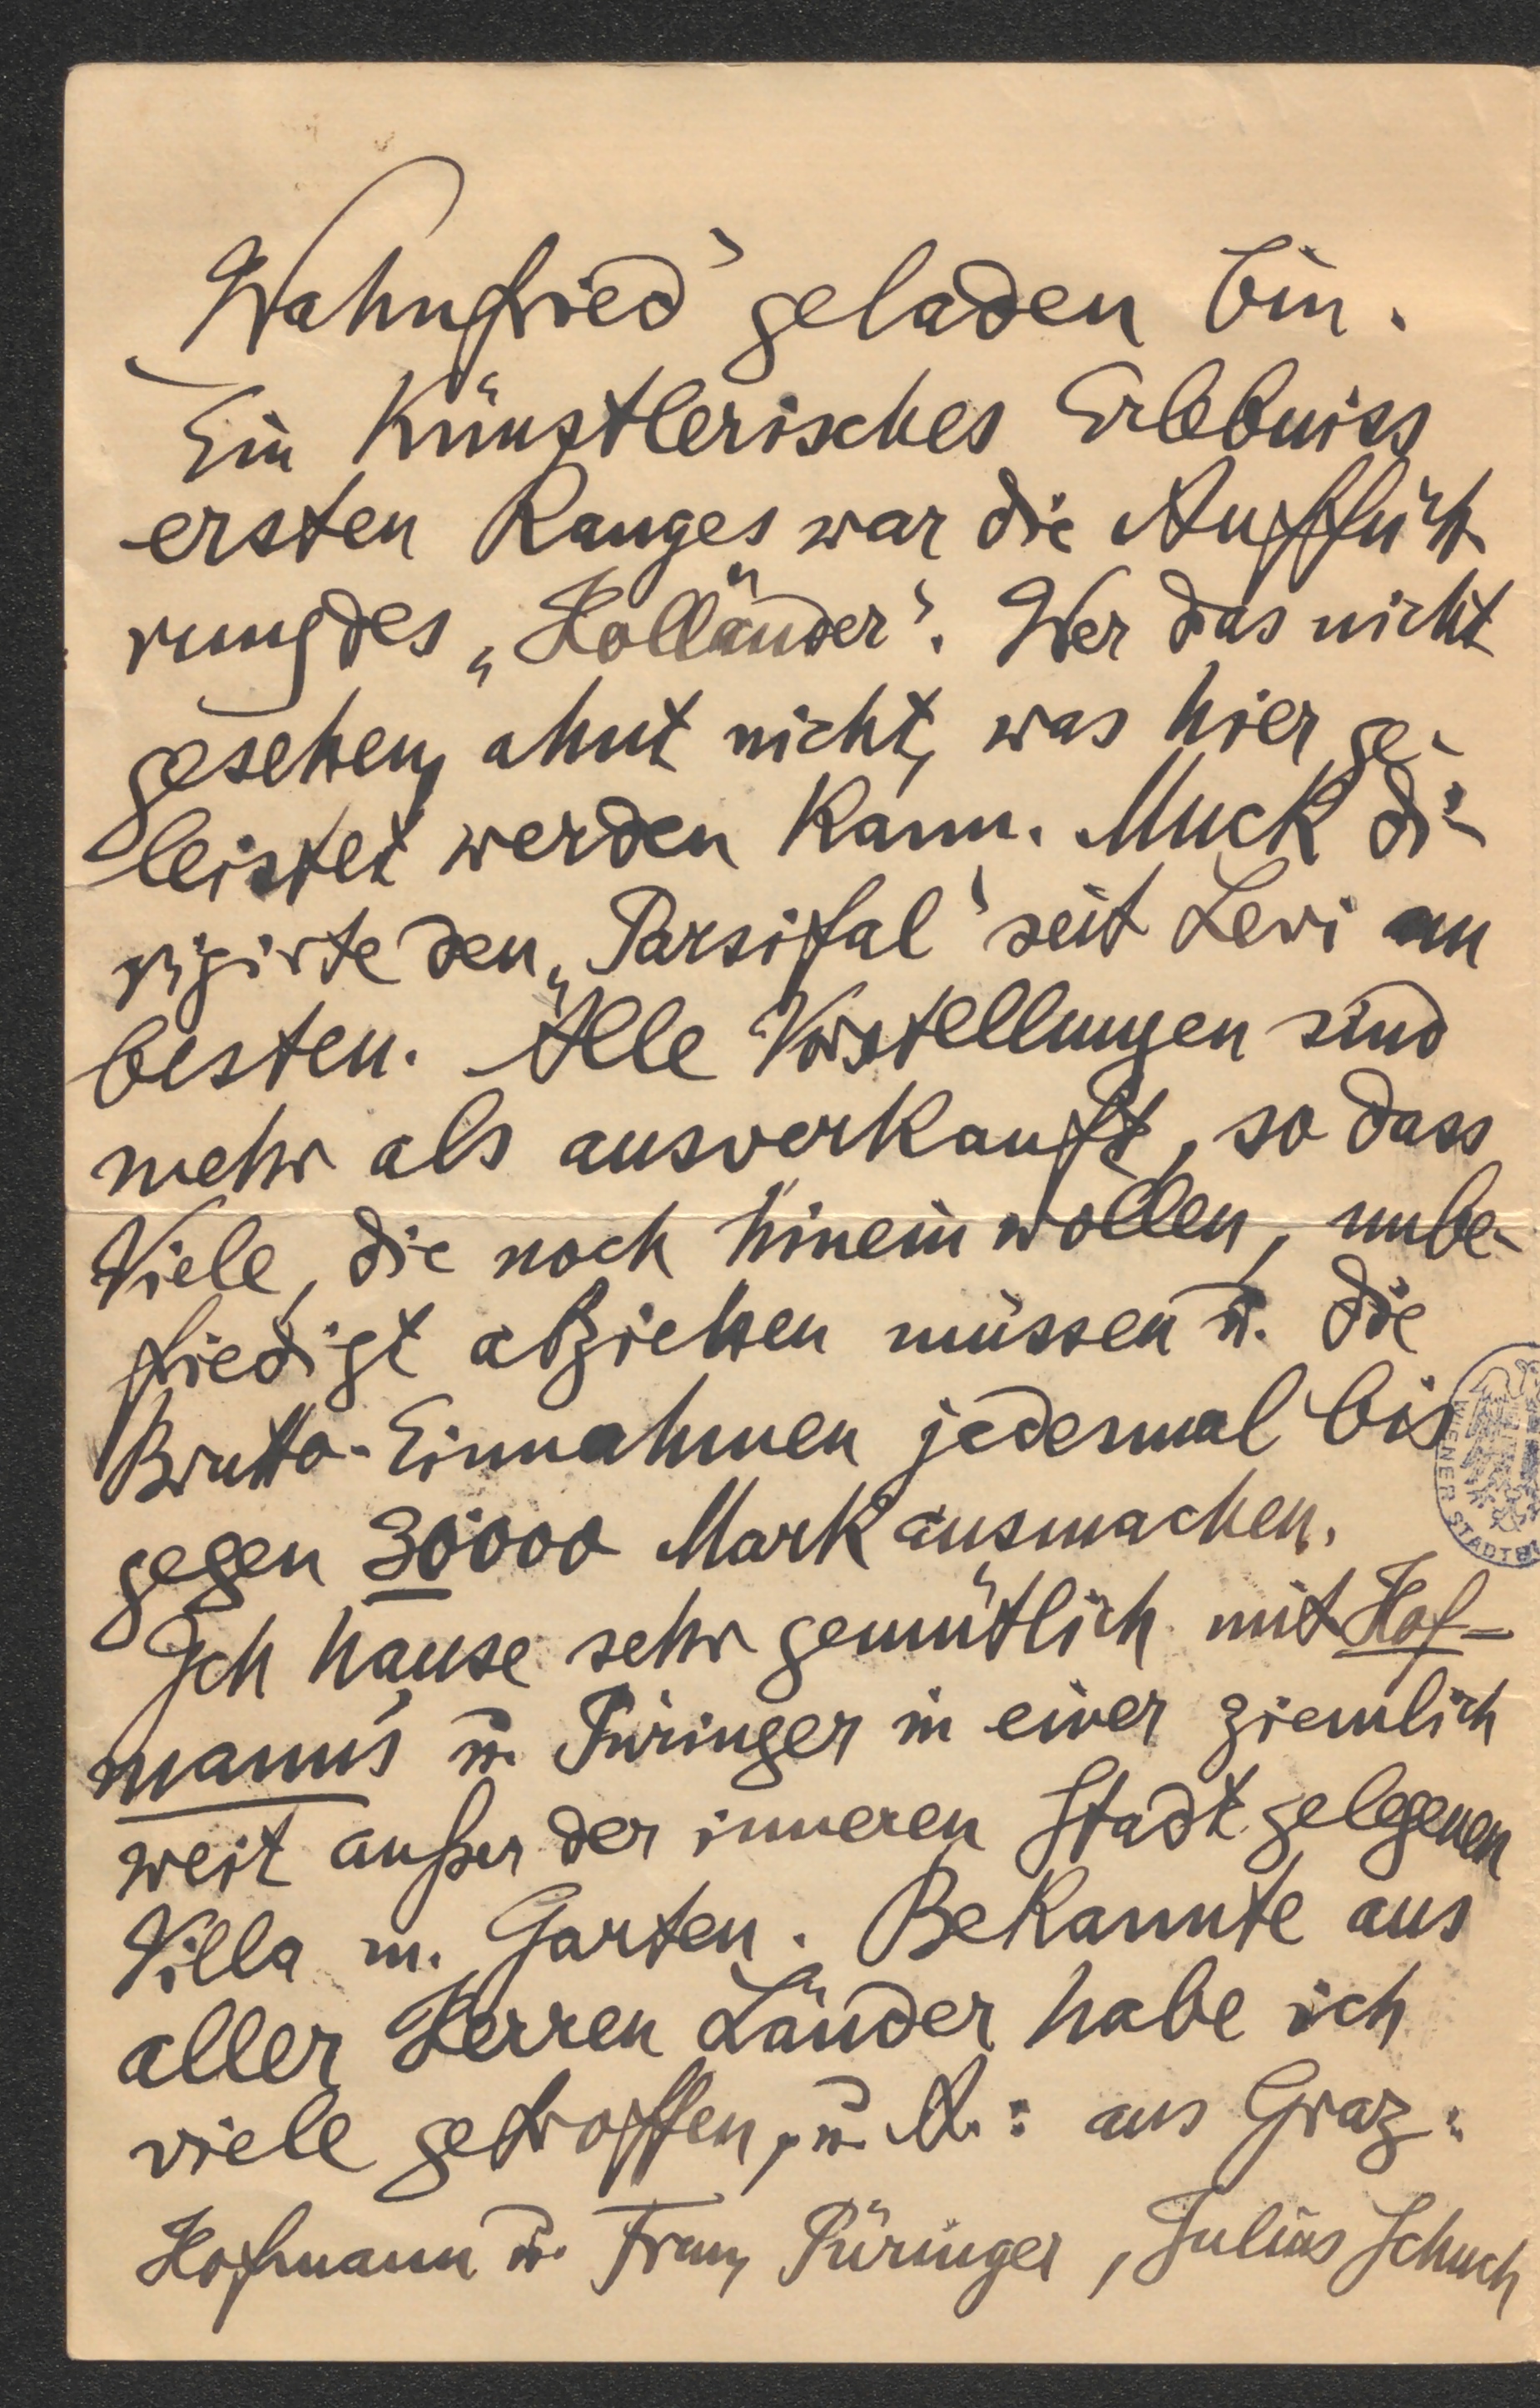 „Wahnfried“ geladen bin.
Ein Künstlerisches Erlebniss
ersten Ranges war die Aufführ
rung des „Holländer“. Wer das nicht
gesehen, ahnt nicht, was hier ge-
leistet werden kann. Muck di-
rigirte den „Parsifal“ seit Levi am
besten. Alle Vorstellungen sind
mehr als ausverkauft, so dass
Viele, die noch hinein wollen, unbe-
friedigt abziehen müssen u. die
Brutto-Einnahmen jedesmal bis
gegen 30000 Mark ausmachen.
Ich hause sehr gemütlich mit Hof-
manns u. Püringer in einer ziemlich
weit außer der inneren Stadt gelegenen
Villa m. Garten. Bekannte aus
aller Herren Länder habe ich
viele getroffen, u. A.: aus Graz:
Hofmann u. Franz Püringer, Julius Schuch
WIENER STADTB